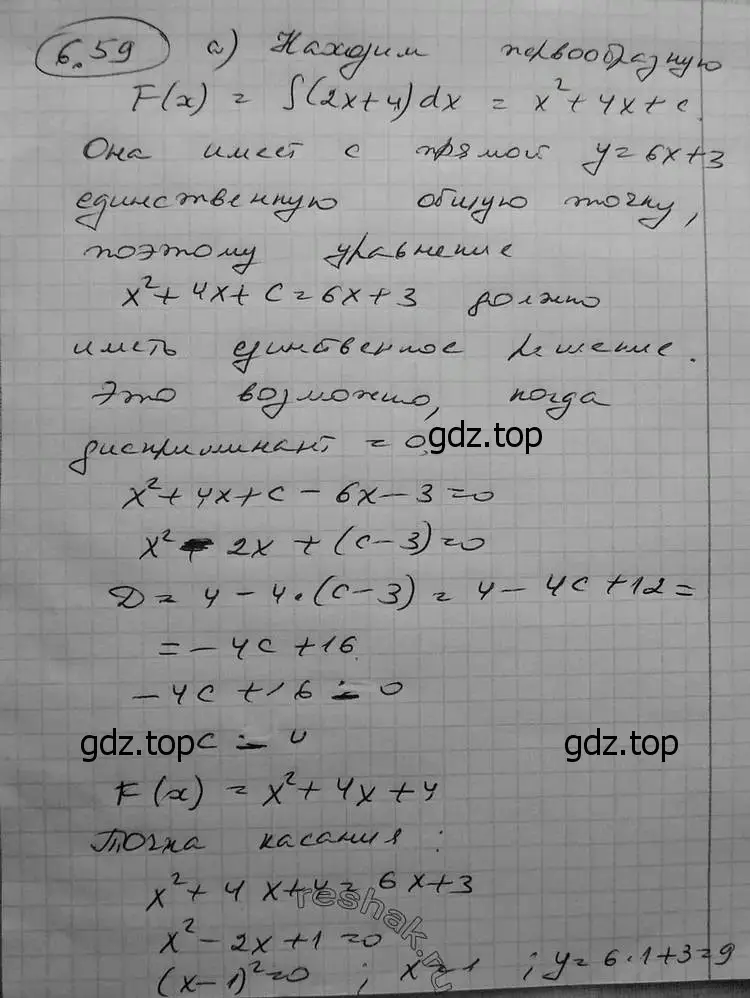 6.59 а) Находим первообразную
F(x) = ∫(2x+4)dx = x²+4x+c.
Она имеет с прямой y=6x+3
единственную общую точку,
поэтому уравнение
x²+4x+c=6x+3 должно
иметь единственное решение.
Это возможно, когда
дискриминант = 0.
gdz.top
x²+4x+c-6x-3=0
x²-2x+(c-3)=0
D=4-4·(c-3)=4-4c+12=
=-4c+16
-4c+16=0
gdz.top c=4 gdz.top
F(x)=x²+4x+4
Точка касания:
x²+4x+4=6x+3
x²-2x+1=0
(x-1)²=0 ; x=1 ; y=6·1+3=9
reshak.ru